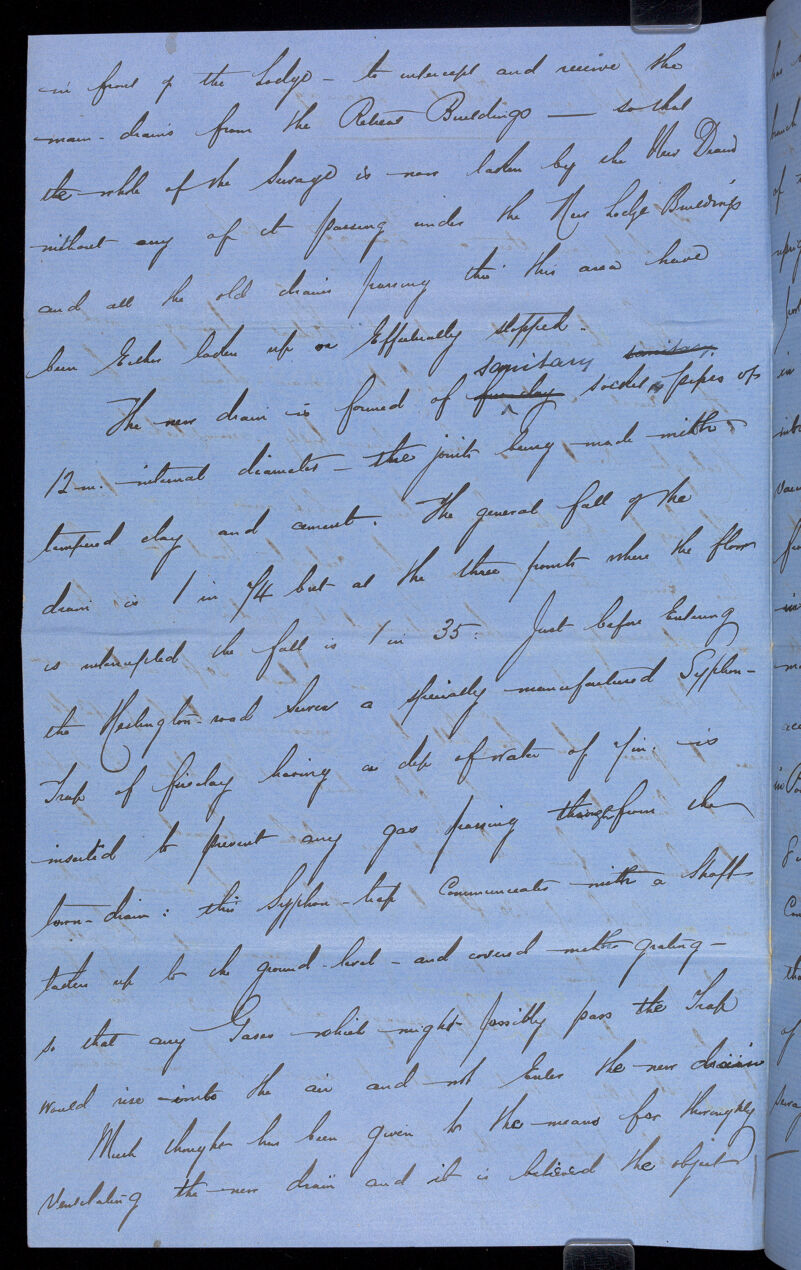 in front of the Lodge – to intercept and receive the
main-drains from the Retreat Buildings — so that
the whole of the Sewage is now taken by the New Drain
without any of it passing under the New Lodge Buildings
and all the old drains passing thro' this area have
been Either taken up or Effectually stopped.
sanitary sanitary
The new drain is formed of fire clay socket pipes of
12 in. internal diameter – the joints being made with
tempered clay and cement. The general fall of the
drain is 1 in 74 but at the three points where the floor
is interrupted the fall is 1 in 35. Just before Entering
the Heslington-road Sewer a specially manufactured Syphon-
Trap of fireclay having a dip of water of 7 in. is
inserted to prevent any gas passing through from the
town-drain: this Syphon-trap Communicates with a Shaft
taken up to the ground-level – and covered with grating –
so that any Gases which might possibly pass the Trap
would rise into the air and not Enter the new drain
Much thought has been given to the means for thoroughly
Ventilating the new drain and it is believed the object